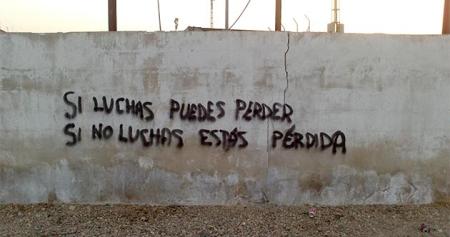 SI LUCHAS PUEDES PERDER
SI NO LUCHAS ESTÁS PÉRDIDA